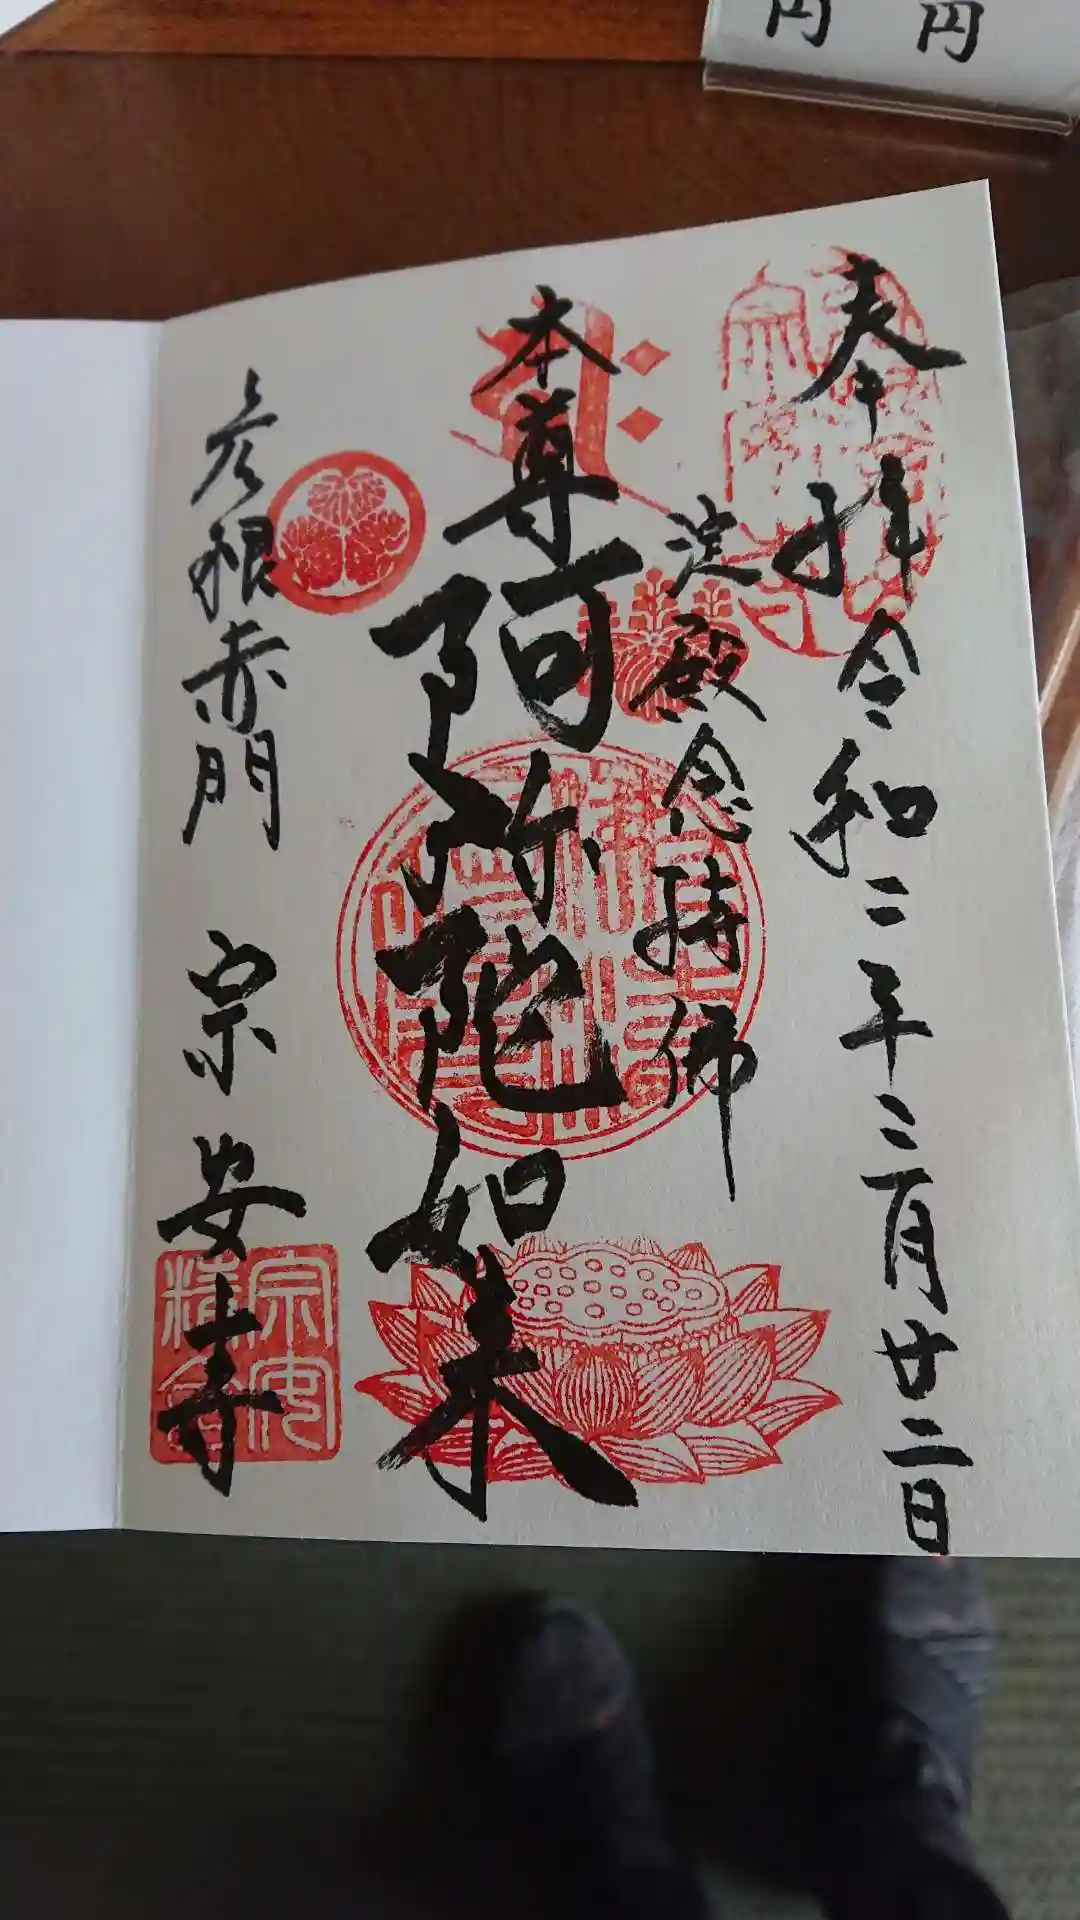 円
円
奉拝 令和二年二月廿二日
淀殿念持佛
本尊 阿弥陀如来
彦根赤門 宗安寺
宗安
精舎